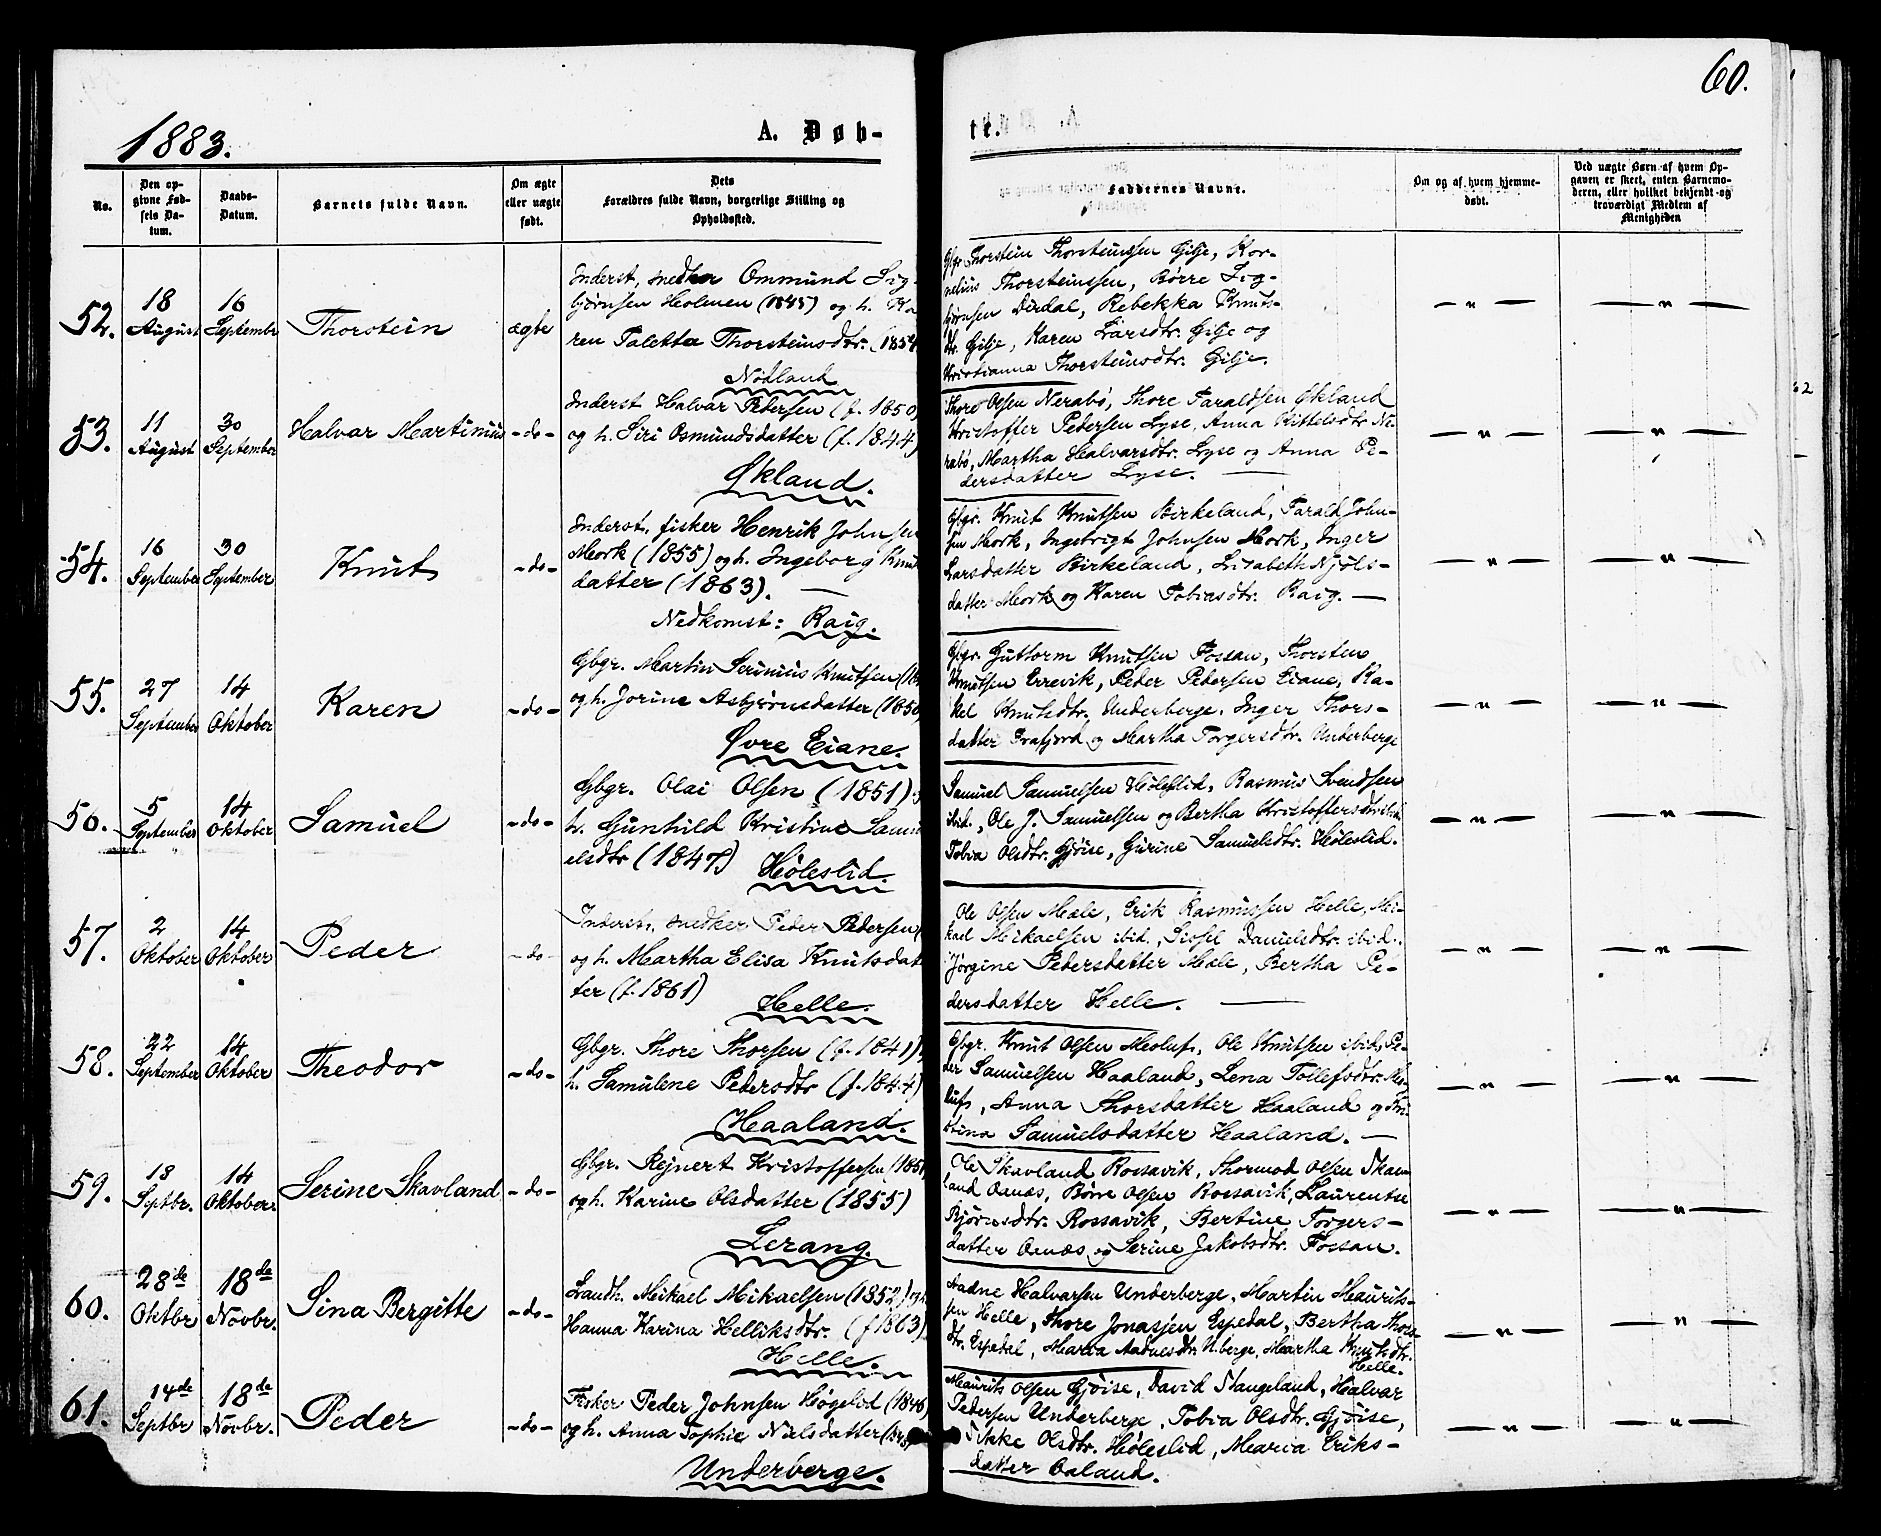 1883.
A. Døb-
te.
60.
No.
Den op-
givne Fød-
sels Da-
tum.
Daabs-
Datum.
Barnets fulde Navn.
Om ægte
eller uægte
født.
Dets
Forældres fulde Navn, borgerlige Stilling og
Opholdssted.
Faddernes Navne.
Om og af hvem hjemme-
døbt.
Ved uægte Børn af hvem Op-
gaven er skeet, enten Barnemo-
deren, eller hvilket bekjendt og
troværdigt Medlem af
Menigheden
52.
18
August
16
Septembr
Thorstein
ægte
Inderst, snedker Ommund Sig-
bjørnsen Holmen (1845) og h. Ka
ren Taletta Thorsteinsdtr. (1854
Nødland
Gbgr Thorstein Thorsteinssen Gilje, Kor-
nelius Thorsteinssen, Børre Sig-
bjørnsen Dirdal, Rebekka Knuts-
dtr. Gilje, Karen Larsdtr. Gilje og
Kristianna Thorsteinsdtr. Gilje.
53.
11
August
30
September
Halvar Martinius
-do-
Inderst Halvar Pedersen (f. 1850)
og h. Siri Osmundsdatter (f. 1844)
Økland.
Thore Olsen Nerabø, Thore Taraldsen Økland
Kristoffer Pedersen Lyse, Anna Kittelsdtr Ne-
rabø, Martha Halvarsdtr. Lyse og Anna Pe-
dersdatter Lyse.
54.
16
September
30
September
Knut
-do-
Inderst, fisker Henrik Johnsen
Mork (1855) og h. Ingeborg Knuts
datter (1863).
Nedkomst: Raig.
Gbgr. Knut Knutsen Birkeland, Tarald John-
sen Mork, Ingebrigt Johnsen Mork, Inger
Larsdatter Birkeland, Lisabeth Njøls-
datter Mork og Karen Tobiasdtr. Raig.
55.
27
September
14
Oktober
Karen
-do-
Gbgr. Martin Serinius Knutsen (18
og h. Jorine Asbjørnsdatter (1850)
Øvre Eiane.
Gbgr. Guttorm Knutsen Fossan, Thorsten
Knutsen Errevik, Peder Pedersen Eiane, Ra-
kel Knutsdtr. Underberge, Inger Thors-
datter Frafjord og Martha Torgersdtr. Underberge
56.
5
September
14
Oktober
Samuel
-do-
Gbgr. Olai Olsen (1851) og
h. Gunhild Kristine Samu
elsdtr (1847)
Høleslid.
Samuel Samuelsen Høleslid, Rasmus Svendsen
ibid., Ole J. Samuelsen og Bertha Kristoffersdtr ibid.
Tobia Olsdtr. Gjøise, Gurine Samuelsdtr. Høleslid.
57.
2
Oktober
14
Oktober
Peder
-do-
Inderst, snedker Peder Pedersen (
og h. Martha Elisa Knutsdat
ter (f. 1861)
Helle.
Ole Olsen Mæle, Erik Rasmussen Helle, Mi-
kael Mikaelsen ibid., Sissel Danielsdtr. ibid.,
Jørgine Pedersdatter Mæle, Bertha Pe-
dersdatter Helle.
58.
22
September
14
Oktober
Theodor
-do-
Gbgr. Thore Thorsen (f. 1841)
h. Samulene Pedersdtr (f. 1844)
Haaland.
Gbgr. Knut Olsen Meoluf, Ole Knutsen ibid., Pe-
der Samuelsen Haaland, Lena Tollefsdtr. Meo-
luf, Anna Thorsdatter Haaland og
Samuelsdatter Haaland.
59.
18
Septbr.
14
Oktober.
Serine Skavland
-do-
Gbgr. Rejnert Kristoffersen (1851
og h. Karine Olsdatter (1855)
Lerang.
Ole Skavland Rossavik, Thormod Olsen Skav-
land Oanæs, Børre Olsen Rossavik, Laurentse
Bjørnsdtr. Rossavik, Bertine Torgers-
datter Oanæs og Serine Jakobsdtr. Fossan.
60.
28de
Oktbr
18de
Novbr.
Sina Bergitte
-do-
Strandh. Mikael Mikaelsen (1852) og h.
Hanna Karina Helliksdtr. (f 1863).
Helle.
Aadne Halvarsen Underberge, Martin Maurits-
sen Helle, Thore Jonassen Espedal, Bertha Thors-
dtr. Espedal, Maria Aadnesdtr. U.berge, Martha Knutsdtr.
Helle.
61.
14de
Septbr
18de
Novbr.
Peder
-do-
Fisker Peder Johnsen Høgelid (1846)
og h. Anna Sophie Nielsdatter
Underberge.
Maurits Olsen Gjøise, David Stangeland, Halvar
Pedersen Underberge, Tobia Olsdtr. Gjøise,
Sikke Olsdtr. Høleslid, Maria Eriks-
datter Oaland.